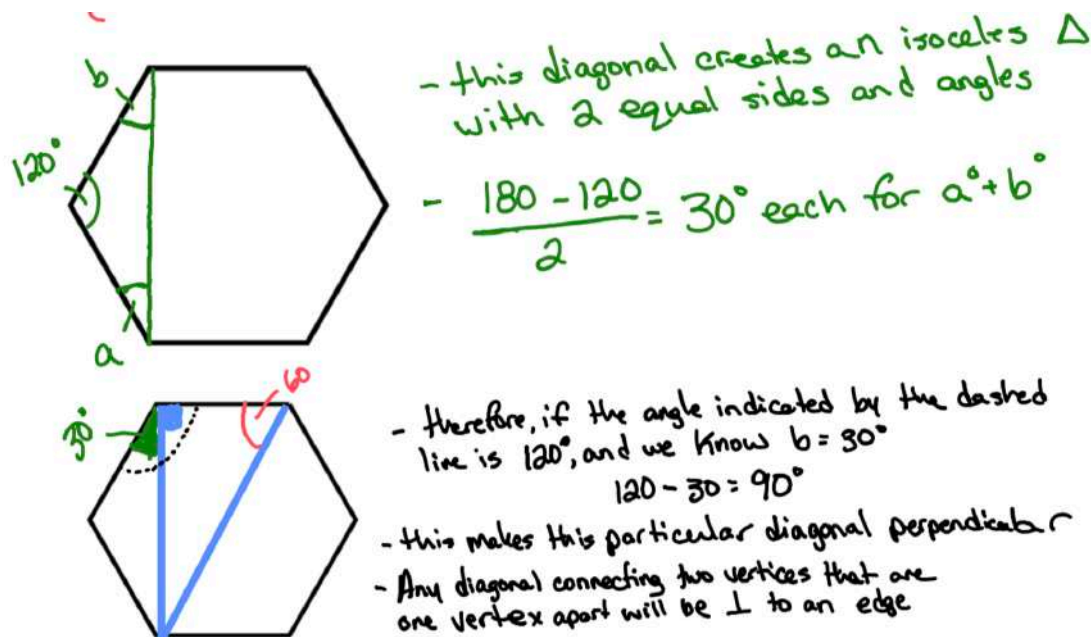 - this diagonal creates an isoceles Δ
with 2 equal sides and angles
b
120°
- 180 - 120 / 2 = 30° each for a° + b°
a
60
30°
- therefore, if the angle indicated by the dashed
line is 120°, and we know b = 30°
120 - 30 = 90°
- this makes this particular diagonal perpendicular
- Any diagonal connecting two vertices that are
one vertex apart will be ⊥ to an edge